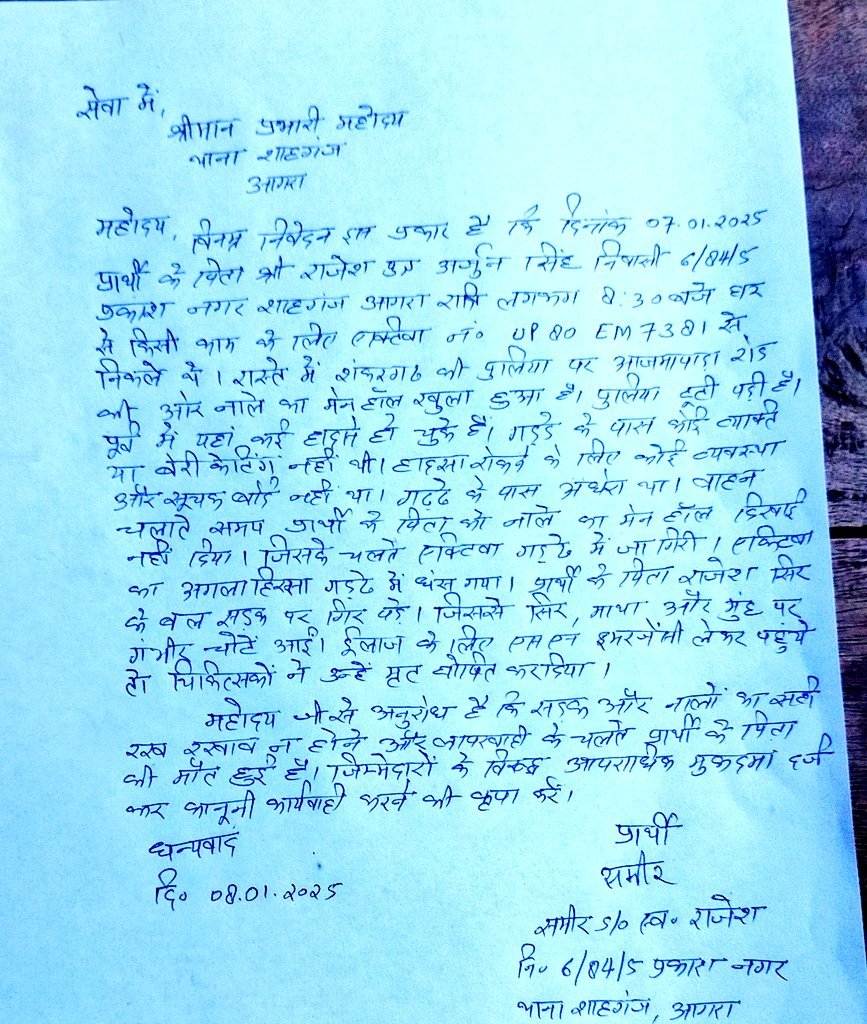 सेवा में,
श्रीमान प्रभारी महोदय
थाना शाहगंज
आगरा
महोदय, विनम्र निवेदन इस प्रकार है कि दिनांक 07.01.2025
प्रार्थी के पिता श्री राजेश पुत्र अर्जुन सिंह निवासी 6/84/5
प्रकाश नगर शाहगंज आगरा रात्रि लगभग 8:30 बजे घर
से किसी काम के लिए एक्टिवा नं० UP 80 EM 7381 से
निकले थे। रास्ते में शंकरगढ की पुलिया पर आजमपाड़ा रोड
की ओर नाले का मेन हॉल खुला हुआ है। पुलिया टूटी पड़ी है।
पूर्व में यहां कई हादसे हो चुके हैं। गड्डे के पास कोई व्यक्ति
या बेरीकेटिंग नहीं थी। हादसा रोकने के लिए कोई व्यवस्था
और सूचक बोर्ड नहीं था। गढ्ढे के पास अंधेरा था। वाहन
चलाते समय प्रार्थी के पिता को नाले का मेन हॉल दिखाई
नहीं दिया। जिसके चलते एक्टिवा गड्ढे में जा गिरी। एक्टिवा
का अगला हिस्सा गड्ढे में धंस गया। प्रार्थी के पिता राजेश सिर
के बल सड़क पर गिर पड़े। जिससे सिर, माथा और मुंह पर
गंभीर चोटें आईं। ईलाज के लिए एसएन इमरजेंसी लेकर पहुंचे
तो चिकित्सकों ने उन्हें मृत घोषित कर दिया।
महोदय जी से अनुरोध है कि सड़क और नालों का सही
रख रखाव न होने और लापरवाही के चलते प्रार्थी के पिता
की मौत हुई है। जिम्मेदारों के विरुद्ध आपराधिक मुकदमा दर्ज
कर कानूनी कार्यवाही करने की कृपा करें।
धन्यवाद
दि० 08.01.2025
प्रार्थी
समीर
समीर S/o स्व० राजेश
नि० 6/84/5 प्रकाश नगर
थाना शाहगंज, आगरा